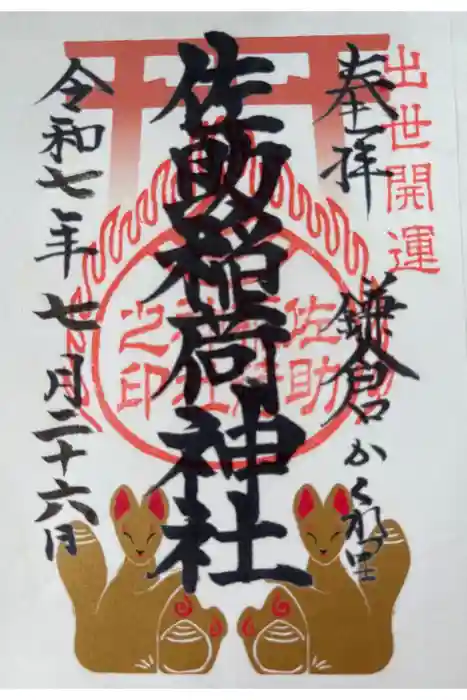 出世開運
奉拝
鎌倉かくれ里
佐助稲荷神社
佐助稲荷社之印
令和七年七月二十六日